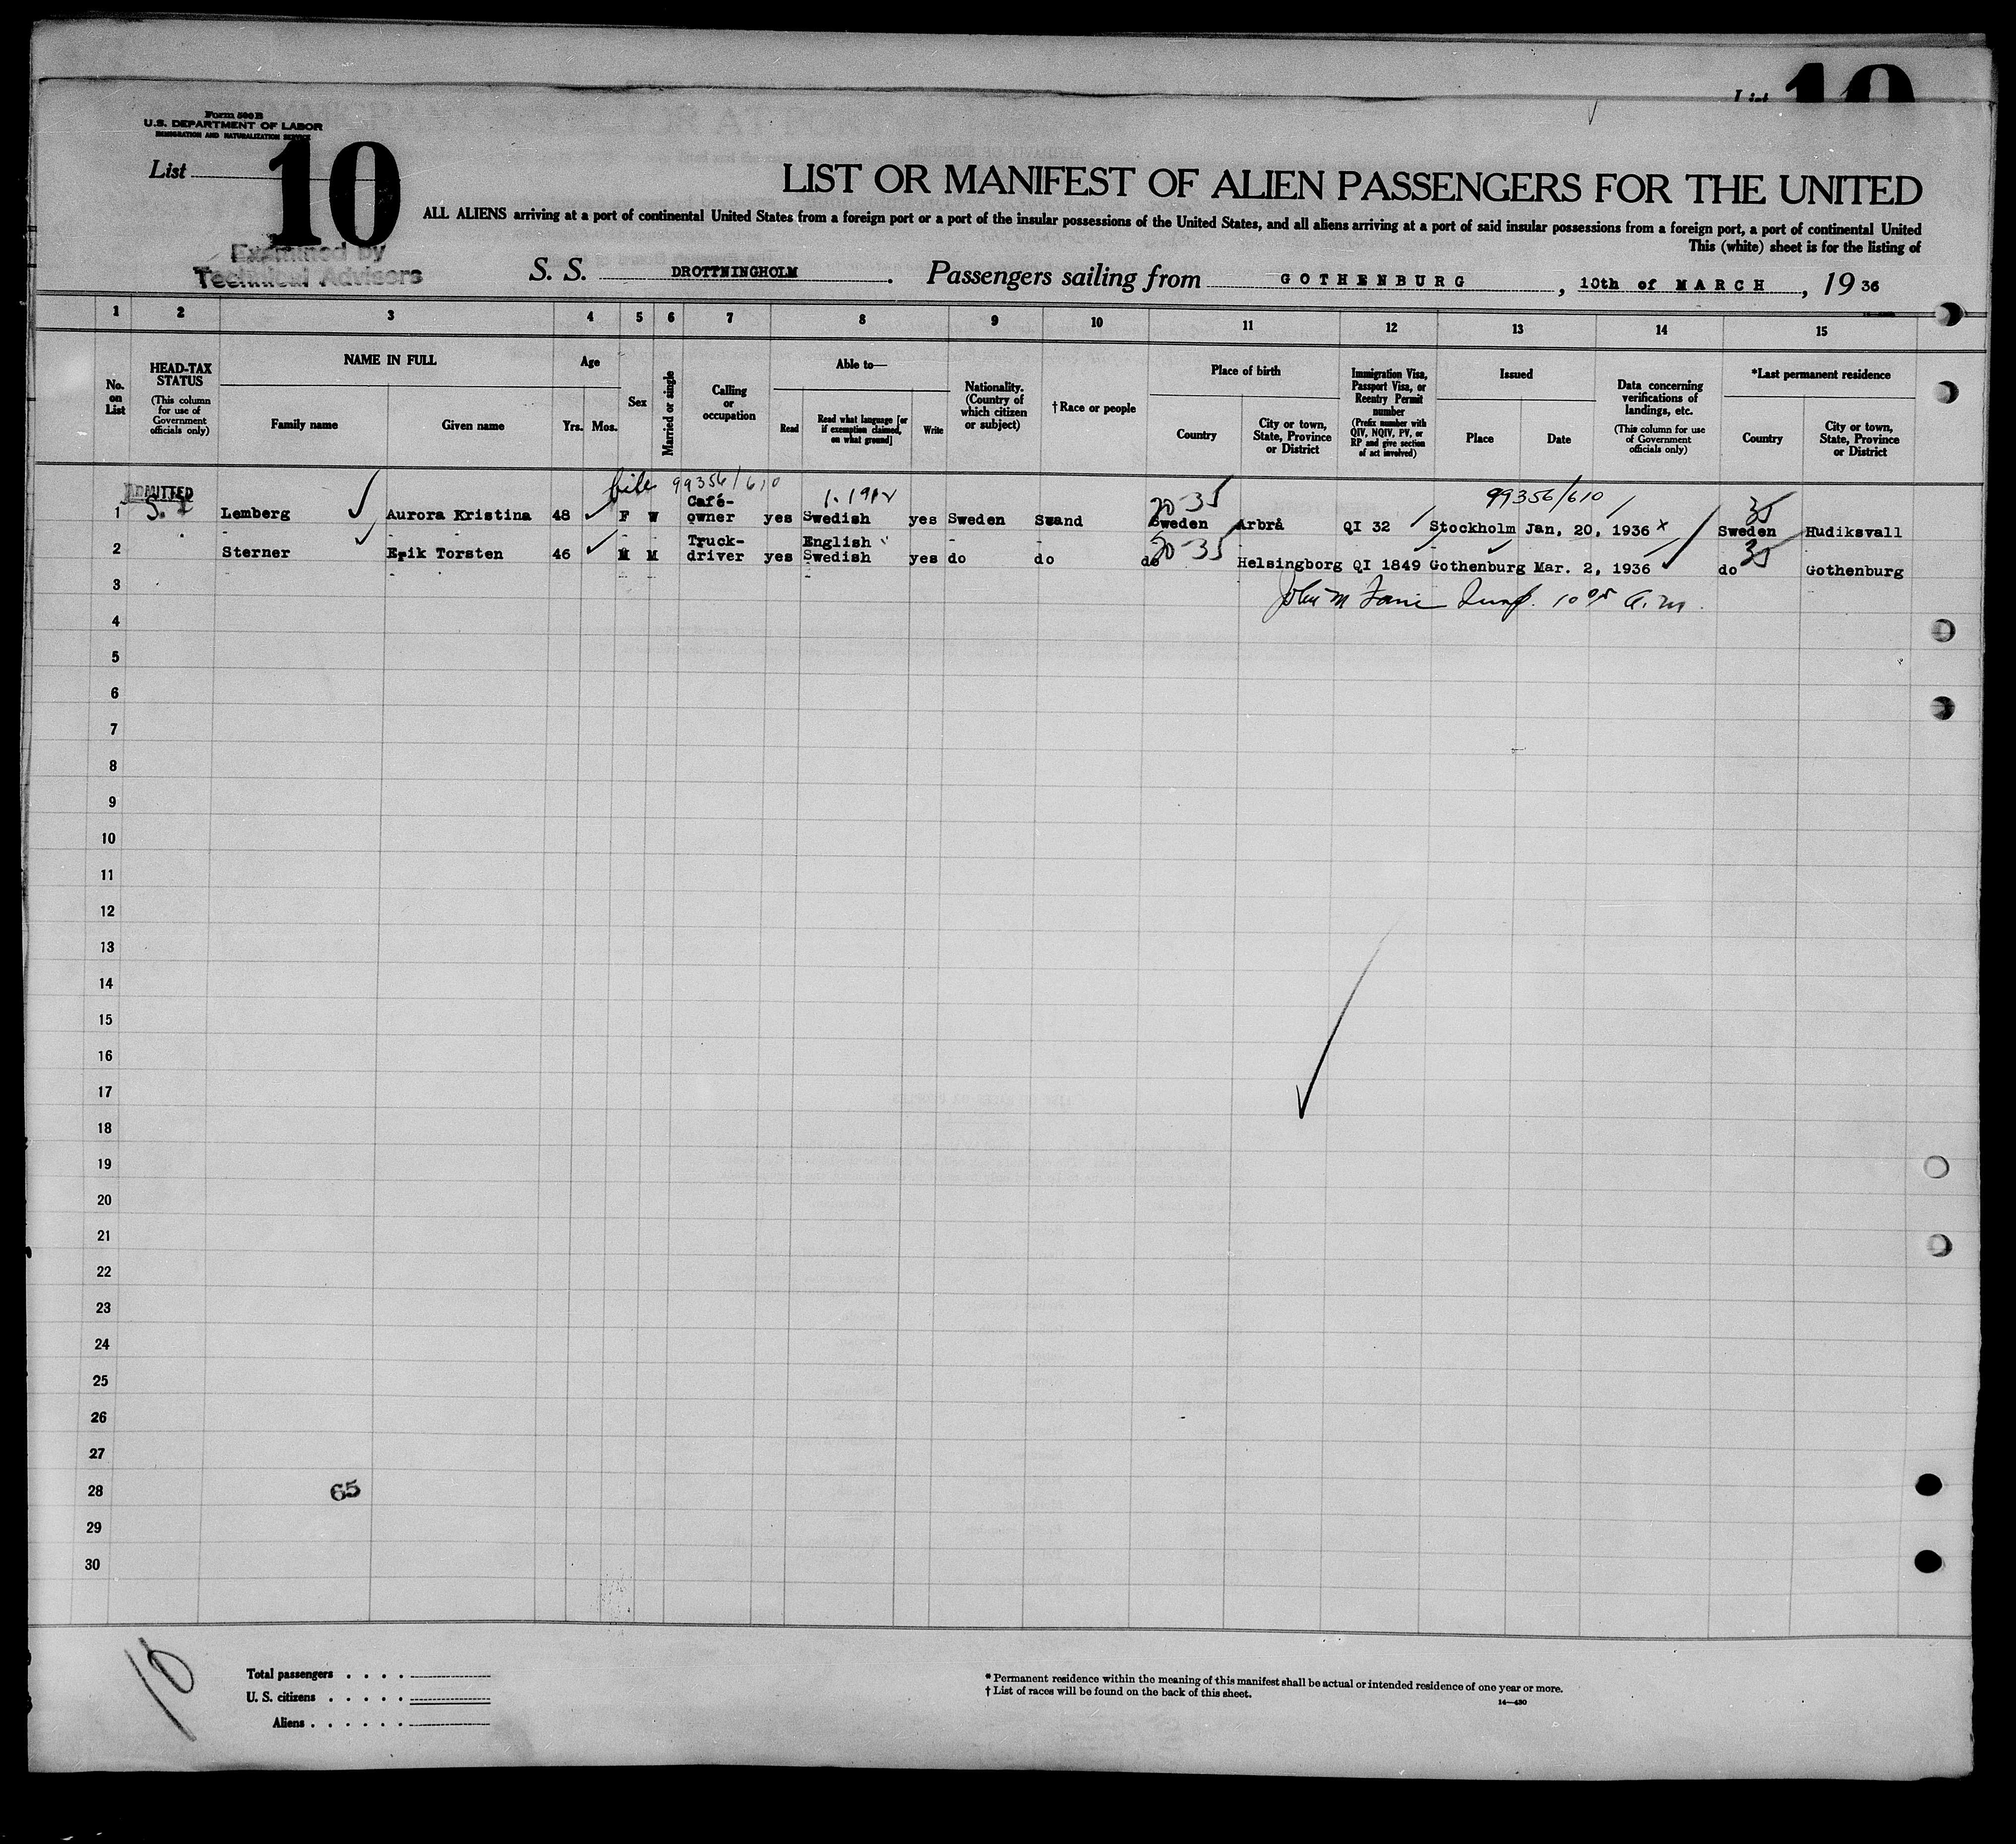 List 10
Form 500 B
U.S. DEPARTMENT OF LABOR
IMMIGRATION AND NATURALIZATION SERVICE
List 10
LIST OR MANIFEST OF ALIEN PASSENGERS FOR THE UNITED
ALL ALIENS arriving at a port of continental United States from a foreign port or a port of the insular possessions of the United States, and all aliens arriving at a port of said insular possessions from a foreign port, a port of continental United
This (white) sheet is for the listing of
Examined by
Technical Advisors
S. S. DROTTNINGHOLM. Passengers sailing from GOTHENBURG, 10th of MARCH, 1936
1 2 3 4 5 6 7 8 9 10 11 12 13 14 15
No. on List
HEAD-TAX STATUS (This column for use of Government officials only)
NAME IN FULL
Family name Given name
Age
Yrs. Mos.
Sex
Married or single
Calling or occupation
Able to—
Read Read what language [or if exemption claimed, on what ground] Write
Nationality. (Country of which citizen or subject)
†Race or people
Place of birth
Country City or town, State, Province or District
Immigration Visa, Passport Visa, or Reentry Permit number (Prefix number with QIV, NQIV, PV, or RP and give section of act involved)
Issued
Place Date
Data concerning verifications of landings, etc. (This column for use of Government officials only)
*Last permanent residence
Country City or town, State, Province or District
ADMITTED file 99356/610 99356/610
1 Lemberg Aurora Kristina 48 F W Café-owner yes Swedish yes Sweden Scand Sweden Arbrå QI 32 Stockholm Jan, 20, 1936 Sweden Hudiksvall
20-35 35
2 Sterner Erik Torsten 46 M M Truck-driver yes English Swedish yes do do do Helsingborg QI 1849 Gothenburg Mar. 2, 1936 do Gothenburg
20-35 35
3
John M
4
5
6
7
8
9
10
11
12
13
14
15
16
17
18
19
20
21
22
23
24
25
26
27
28 65
29
30
10
Total passengers
U. S. citizens
Aliens
* Permanent residence within the meaning of this manifest shall be actual or intended residence of one year or more.
† List of races will be found on the back of this sheet.
14—430